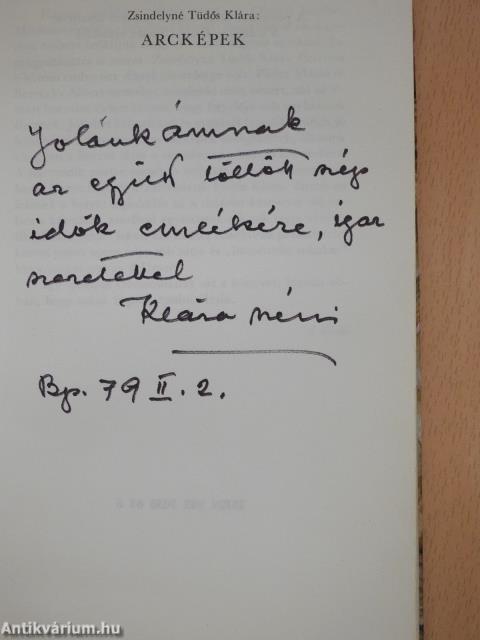 Zsindelyné Tüdős Klára:
ARCKÉPEK
Jolánkámnak
az együtt töltött szép
idők emlékére, igaz
szeretettel
Klára néni
Bp. 79 II. 2.
Antikvárium.hu